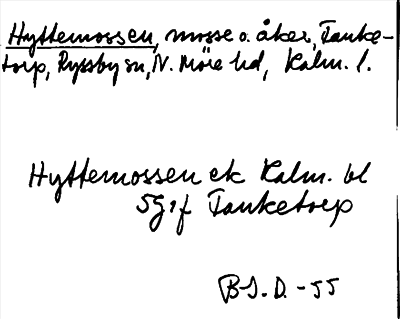 Hyttemossen, mosse o. åker, Tanke-
torp, Ryssby sn, N. Möre hd, Kalm. l.
Hyttemossen ek Kalm. bl
5G1f Tanketorp
B-S. D. -55